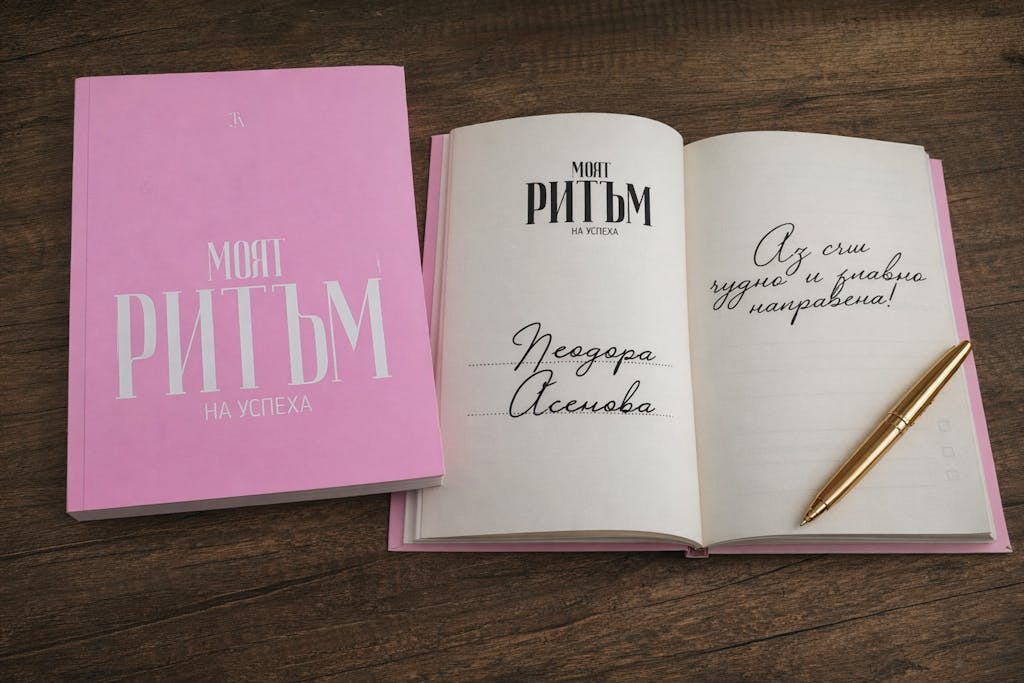 МОЯТ
РИТЪМ
НА УСПЕХА
МОЯТ
РИТЪМ
НА УСПЕХА
Теодора
Асенова
Аз съм
чудно и славно
направена!